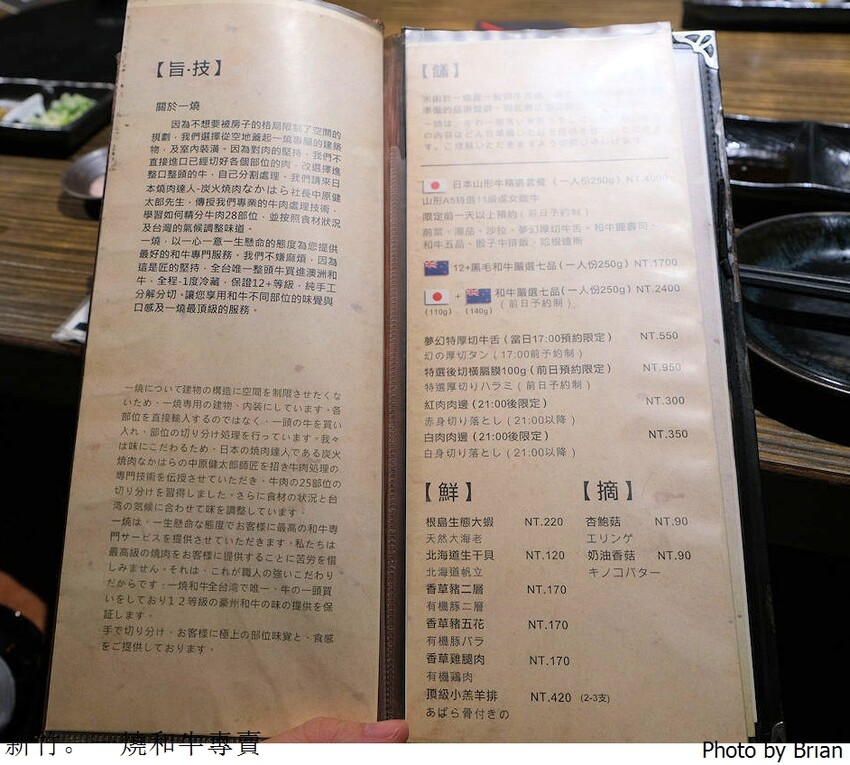 【旨·技】
關於一燒
因為不想要被房子的格局限制了空間的
規劃，我們選擇從空地蓋起一燒專屬的建築
物，及室內裝潢。因為對肉的堅持，我們不
直接進口已經切好各個部位的肉，改選擇進
整口整頭的牛，自己分割處理，我們請來日
本燒肉達人-炭火燒肉なかはら社長中原健
太郎先生，傳授我們專業的牛肉處理技術，
學習如何精分牛肉28部位，並按照食材狀況
及台灣的氣候調整味道。
一燒，以一心一意一生懸命的態度為您提供
最好的和牛專門服務，我們不嫌麻煩，因為
這是匠的堅持，全台唯一整頭牛買進澳洲和
牛，全程-1度冷藏，保證12+等級，純手工
分解分切，讓您享用和牛不同部位的味覺與
口感及一燒最頂級的服務。
一燒について建物の構造に空間を制限させたくな
いため，一燒專用の建物、内装にしています。各
部位を直接輸入するのではなく、一頭の牛を買い
入れ、部位の切り分け処理を行っています。我々
は味にこだわるため、日本の焼肉達人である炭火
焼肉なかはらの中原健太郎師匠を招き牛肉処理の
専門技術を伝授させていただき、牛肉の25部位の
切り分けを習得しました。さらに食材の状況と台
湾の気候に合わせて味を調整しています。
一燒は，一生懸命な態度でお客様に最高の和牛専
門サービスを提供させていただきます。私たちは
最高級の焼肉をお客様に提供することに苦労を惜
しみません。それは、これが職人の強いこだわり
だからです；一燒和牛全台湾で唯一、牛の一頭買
いをしており12等級の豪州和牛の味の提供を保
証します。
手で切り分け、お客様に極上の部位味覚と、食感
をご提供しております。
日本山形牛精選套餐 (一人份250g) NT.4000
山形A5特選11級處女雌牛
限定前一天以上預約 (前日予約制)
前菜、湯品、沙拉、夢幻厚切牛舌、和牛握壽司、
和牛五品、骰子牛排飯、哈根達斯
12+黑毛和牛嚴選七品(一人份250g) NT.1700
+ 和牛嚴選七品(一人份250g) NT.2400
(110g) (140g) (前日予約制)
夢幻特厚切牛舌(當日17:00預約限定) NT.550
幻の厚切タン (17:00前予約制)
特選後切橫膈膜100g (前日預約限定) NT.950
特選厚切りハラミ (前日予約制)
紅肉肉邊 (21:00後限定) NT.300
赤身切り落とし (21:00以降)
白肉肉邊(21:00後限定) NT.350
白身切り落とし (21:00以降)
【鮮】 【摘】
根島生態大蝦 NT.220 杏鮑菇 NT.90
天然大海老 エリンゲ
北海道生干貝 NT.120 奶油香菇 NT.90
北海道帆立 キノコバター
香草豬二層 NT.170
有機豚二層
香草豬五花 NT.170
有機豚バラ
香草雞腿肉 NT.170
有機鶏肉
頂級小羔羊排 NT.420 (2-3支)
あばら骨付きの
新竹。 一燒和牛專賣
Photo by Brian